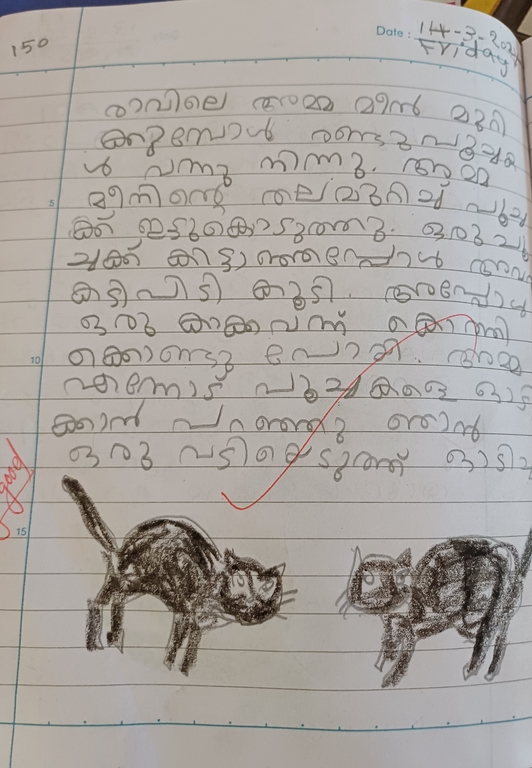 150
Date : 14-3-202
Friday
രാവിലെ അമ്മ മീൻ മുറി
ക്കുമ്പോൾ രണ്ടു പൂച്ചക
ൾ വന്നു നിന്നു. അമ്മ
5 മീനിന്റെ തല മുറിച്ച് പൂച്ച
ക്ക് ഇട്ടുകൊടുത്തു. ഒരു പൂ
ച്ചക്ക് കിട്ടാഞ്ഞപ്പോൾ അവ
കടിപിടി കൂടി. അപ്പോൾ
ഒരു കാക്ക വന്ന് കൊത്തി
10 ക്കൊണ്ടു പോയി. അമ്മ
എന്നോട് പൂച്ചകളെ ഓടി
ക്കാൻ പറഞ്ഞു ഞാൻ
ഒരു വടിയെടുത്ത് ഓടിച്ച
good
15